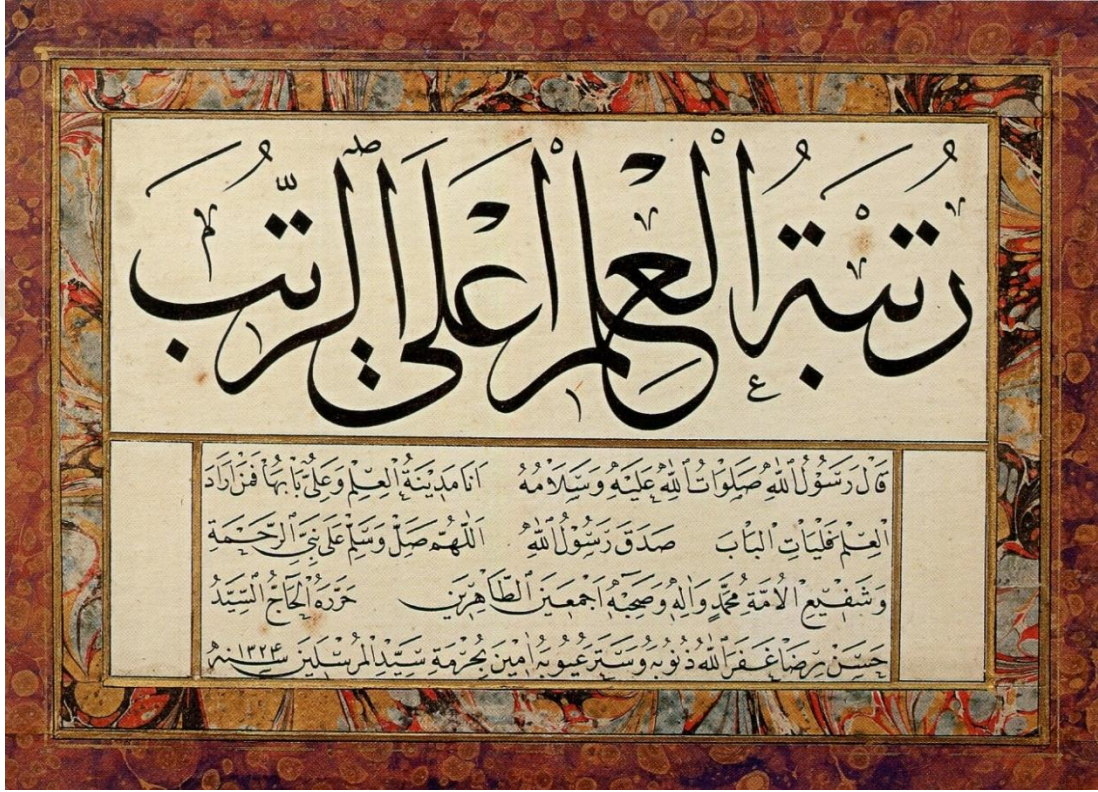 رُتْبَةُ الْعِلْمِ أَعْلَى الرُّتَبِ
قَالَ رَسُولُ اللهِ صَلَوَاتُ اللهِ عَلَيْهِ وَسَلَامُهُ اَنَا مَدِينَةُ الْعِلْمِ وَعَلِىٌّ بَابُهَا فَمَنْ اَرَادَ
الْعِلْمَ فَلْيَاْتِ الْبَابَ صَدَقَ رَسُولُ اللهِ اَللّٰهُمَّ صَلِّ وَسَلِّمْ عَلَى نَبِىِّ الرَّحْمَةِ
وَشَفِيعِ الْاُمَّةِ مُحَمَّدٍ وَاٰلِهِ وَصَحْبِهِ اَجْمَعِينَ الطَّاهِرِينَ حَرَّرَهُ الْحَاجُّ السَّيِّدُ
حَسَنْ رِضَا غَفَرَ اللهُ ذُنُوبَهُ وَسَتَرَ عُيُوبَهُ اٰمِينَ بِحُرْمَةِ سَيِّدِ الْمُرْسَلِينَ سنه ١٣٢٤